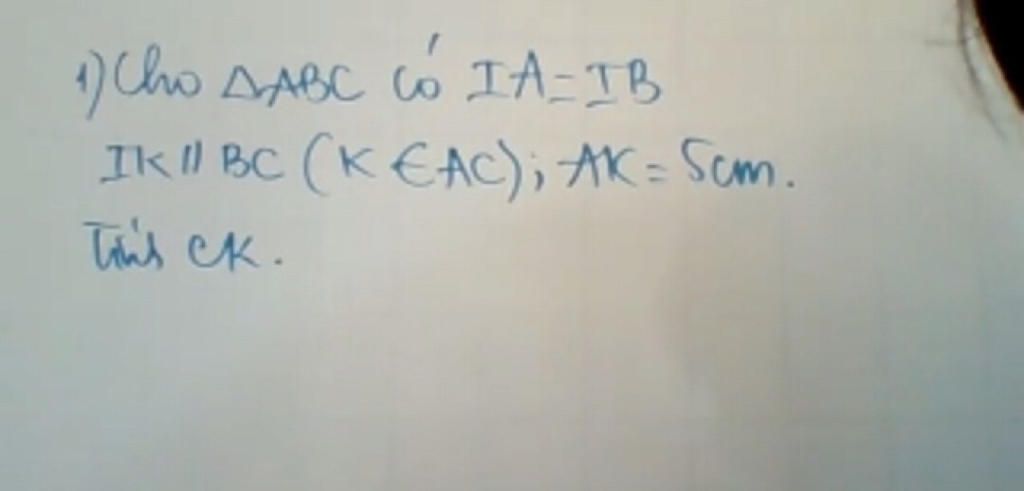 1) Cho ΔABC có IA = IB
IK // BC (K ∈ AC); AK = 5cm.
Tính CK.